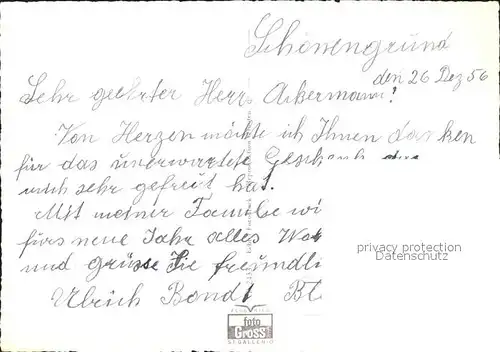 Schönengrund
den 26 Dez 56
Sehr geehrter Herr Ackermann!
Von Herzen möchte ich Ihnen danken
für das unerwartete Geschenk das
mich sehr gefreut hat.
Mit meiner Familie wü
fürs neue Jahr alles
und grüsse Sie freundli
Ulrich
privacy protection
Datenschutz
foto
Gross
ST.GALLEN